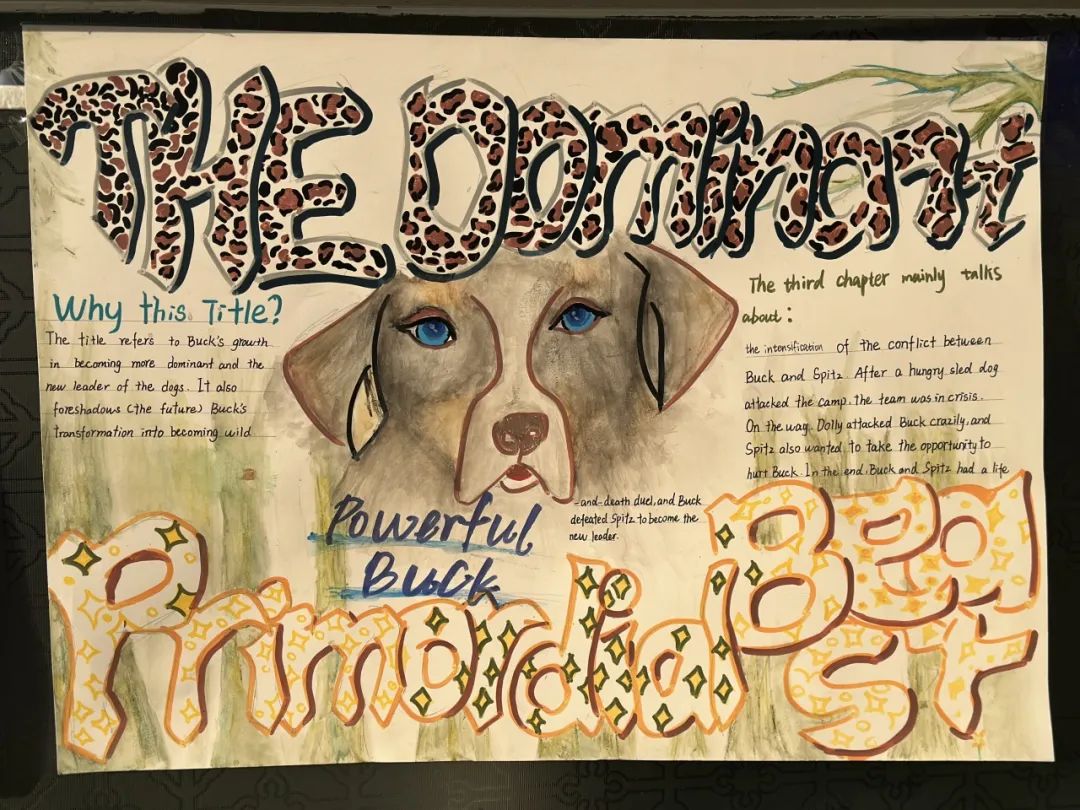 THE Dominant
Why this Title?
The title refers to Buck's growth
in becoming more dominant and the
new leader of the dogs. It also
foreshadows (the future) Buck's
transformation into becoming wild
The third chapter mainly talks
about:
the intensification of the conflict between
Buck and Spitz. After a hungry sled dog
attacked the camp, the team was in crisis.
On the way, Dolly attacked Buck crazily, and
Spitz also wanted to take the opportunity to
hurt Buck. In the end, Buck and Spitz had a life
-and-death duel, and Buck
defeated Spitz to become the
new leader.
Powerful
Buck
Primordial
Bea
st